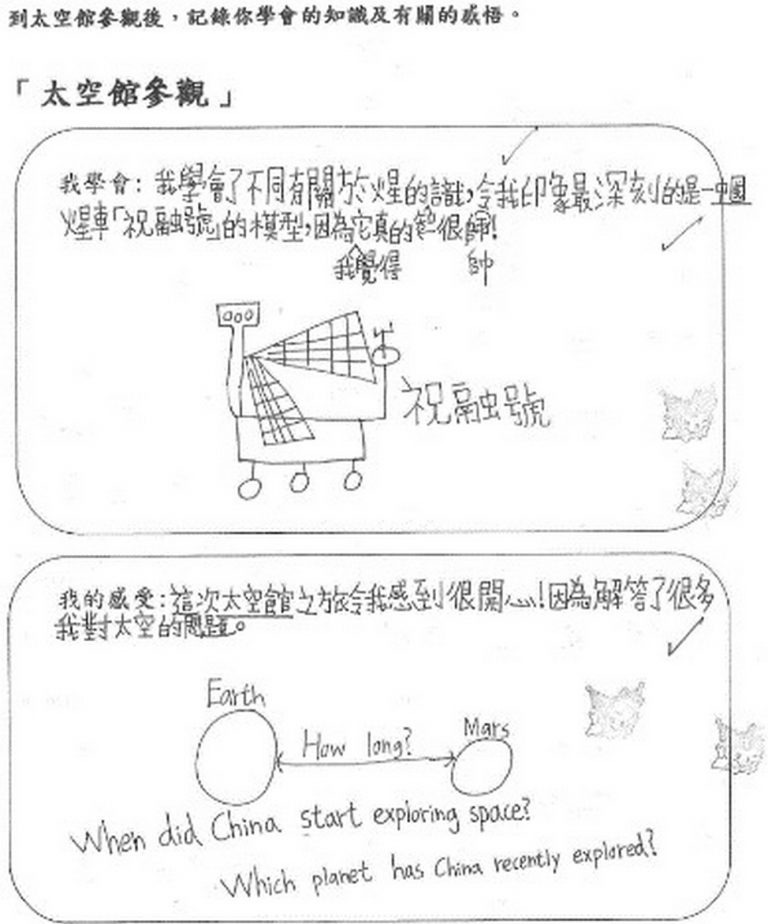 到太空館參觀後，記錄你學會的知識及有關的感悟。
「太空館參觀」
我學會：我學會了不同有關於火星的識,令我印象最深刻的是一中國
火星車「祝融號」的模型,因為它真的很帥!
我覺得 帥
祝融號
我的感受：這次太空館之旅令我感到很開心!因為解答了很多
我對太空的問題。
Earth
How long?
Mars
When did China start exploring space?
Which planet has China recently explored?